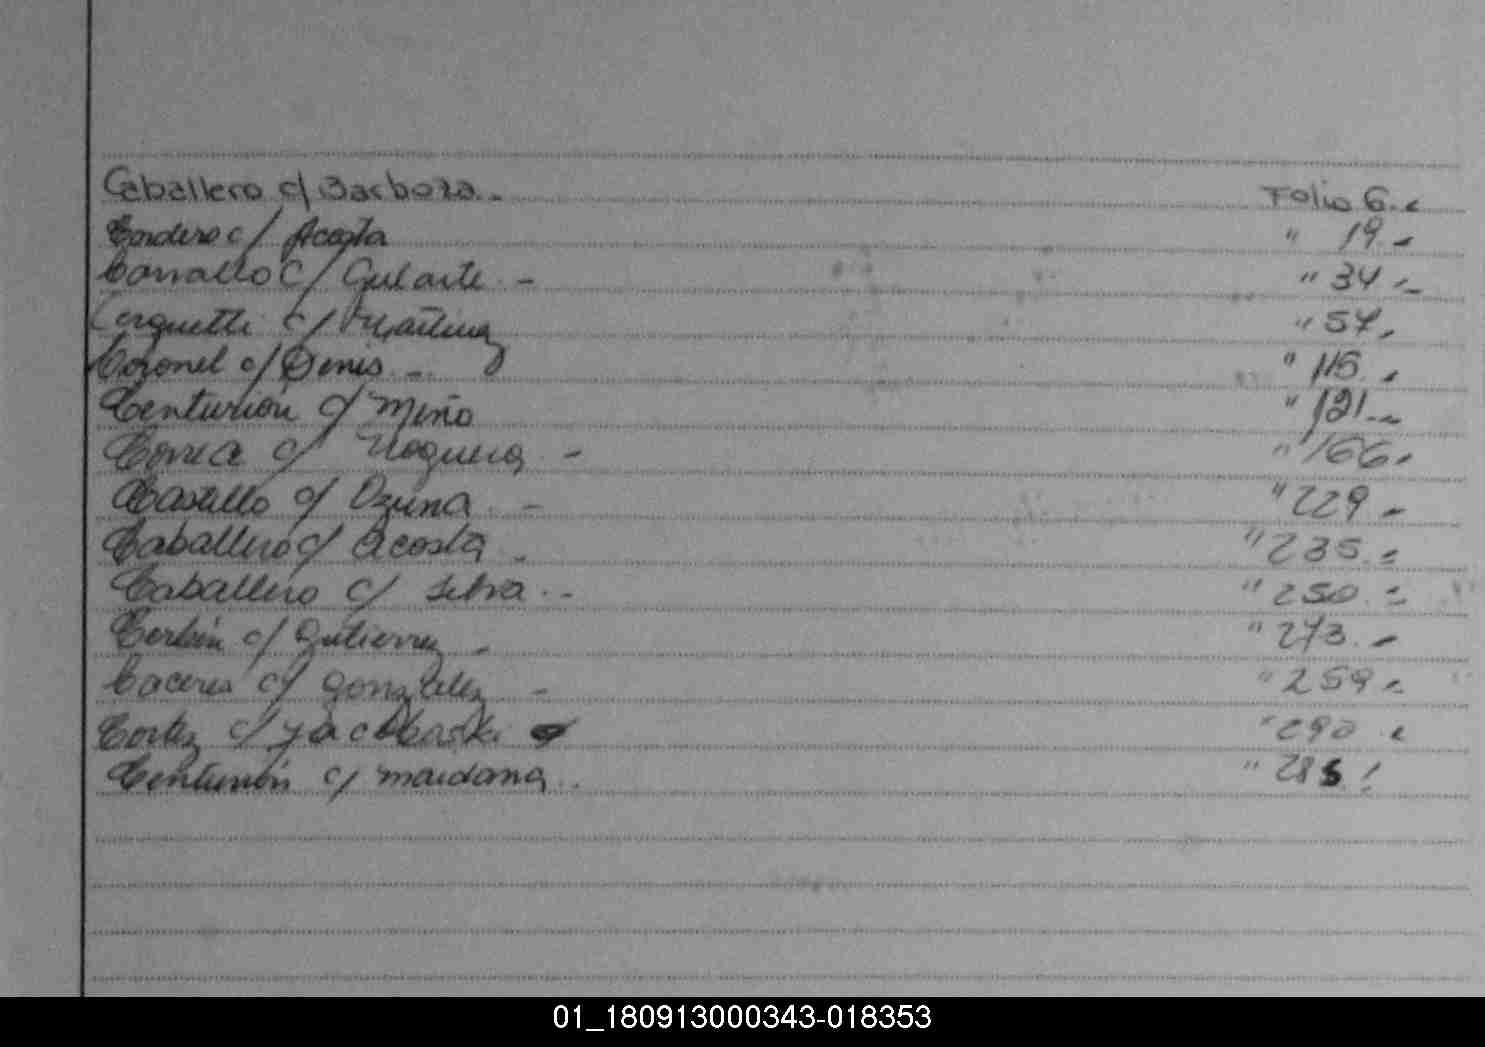 Caballero c/ Barboza.- Folio 6.-
Cordero c/ Acosta " 19.-
Carrallo c/ Gularte.- " 34.-
Cerquetti c/ Martinez " 57.
Coronel c/ Denis.- " 115.
Centurión c/ Miño " 121.-
Correa c/ Noguera - " 166.
Castillo c/ Ozuna.- " 229.-
Caballero c/ Acosta.- " 235.-
Caballero c/ Silva.- " 250.-
c/ Gutierrez.- " 273.-
Caceres c/ Gonzalez - " 259.-
Cortez c/ " 290.
Centurión c/ Maidana. " 285.
01_180913000343-018353